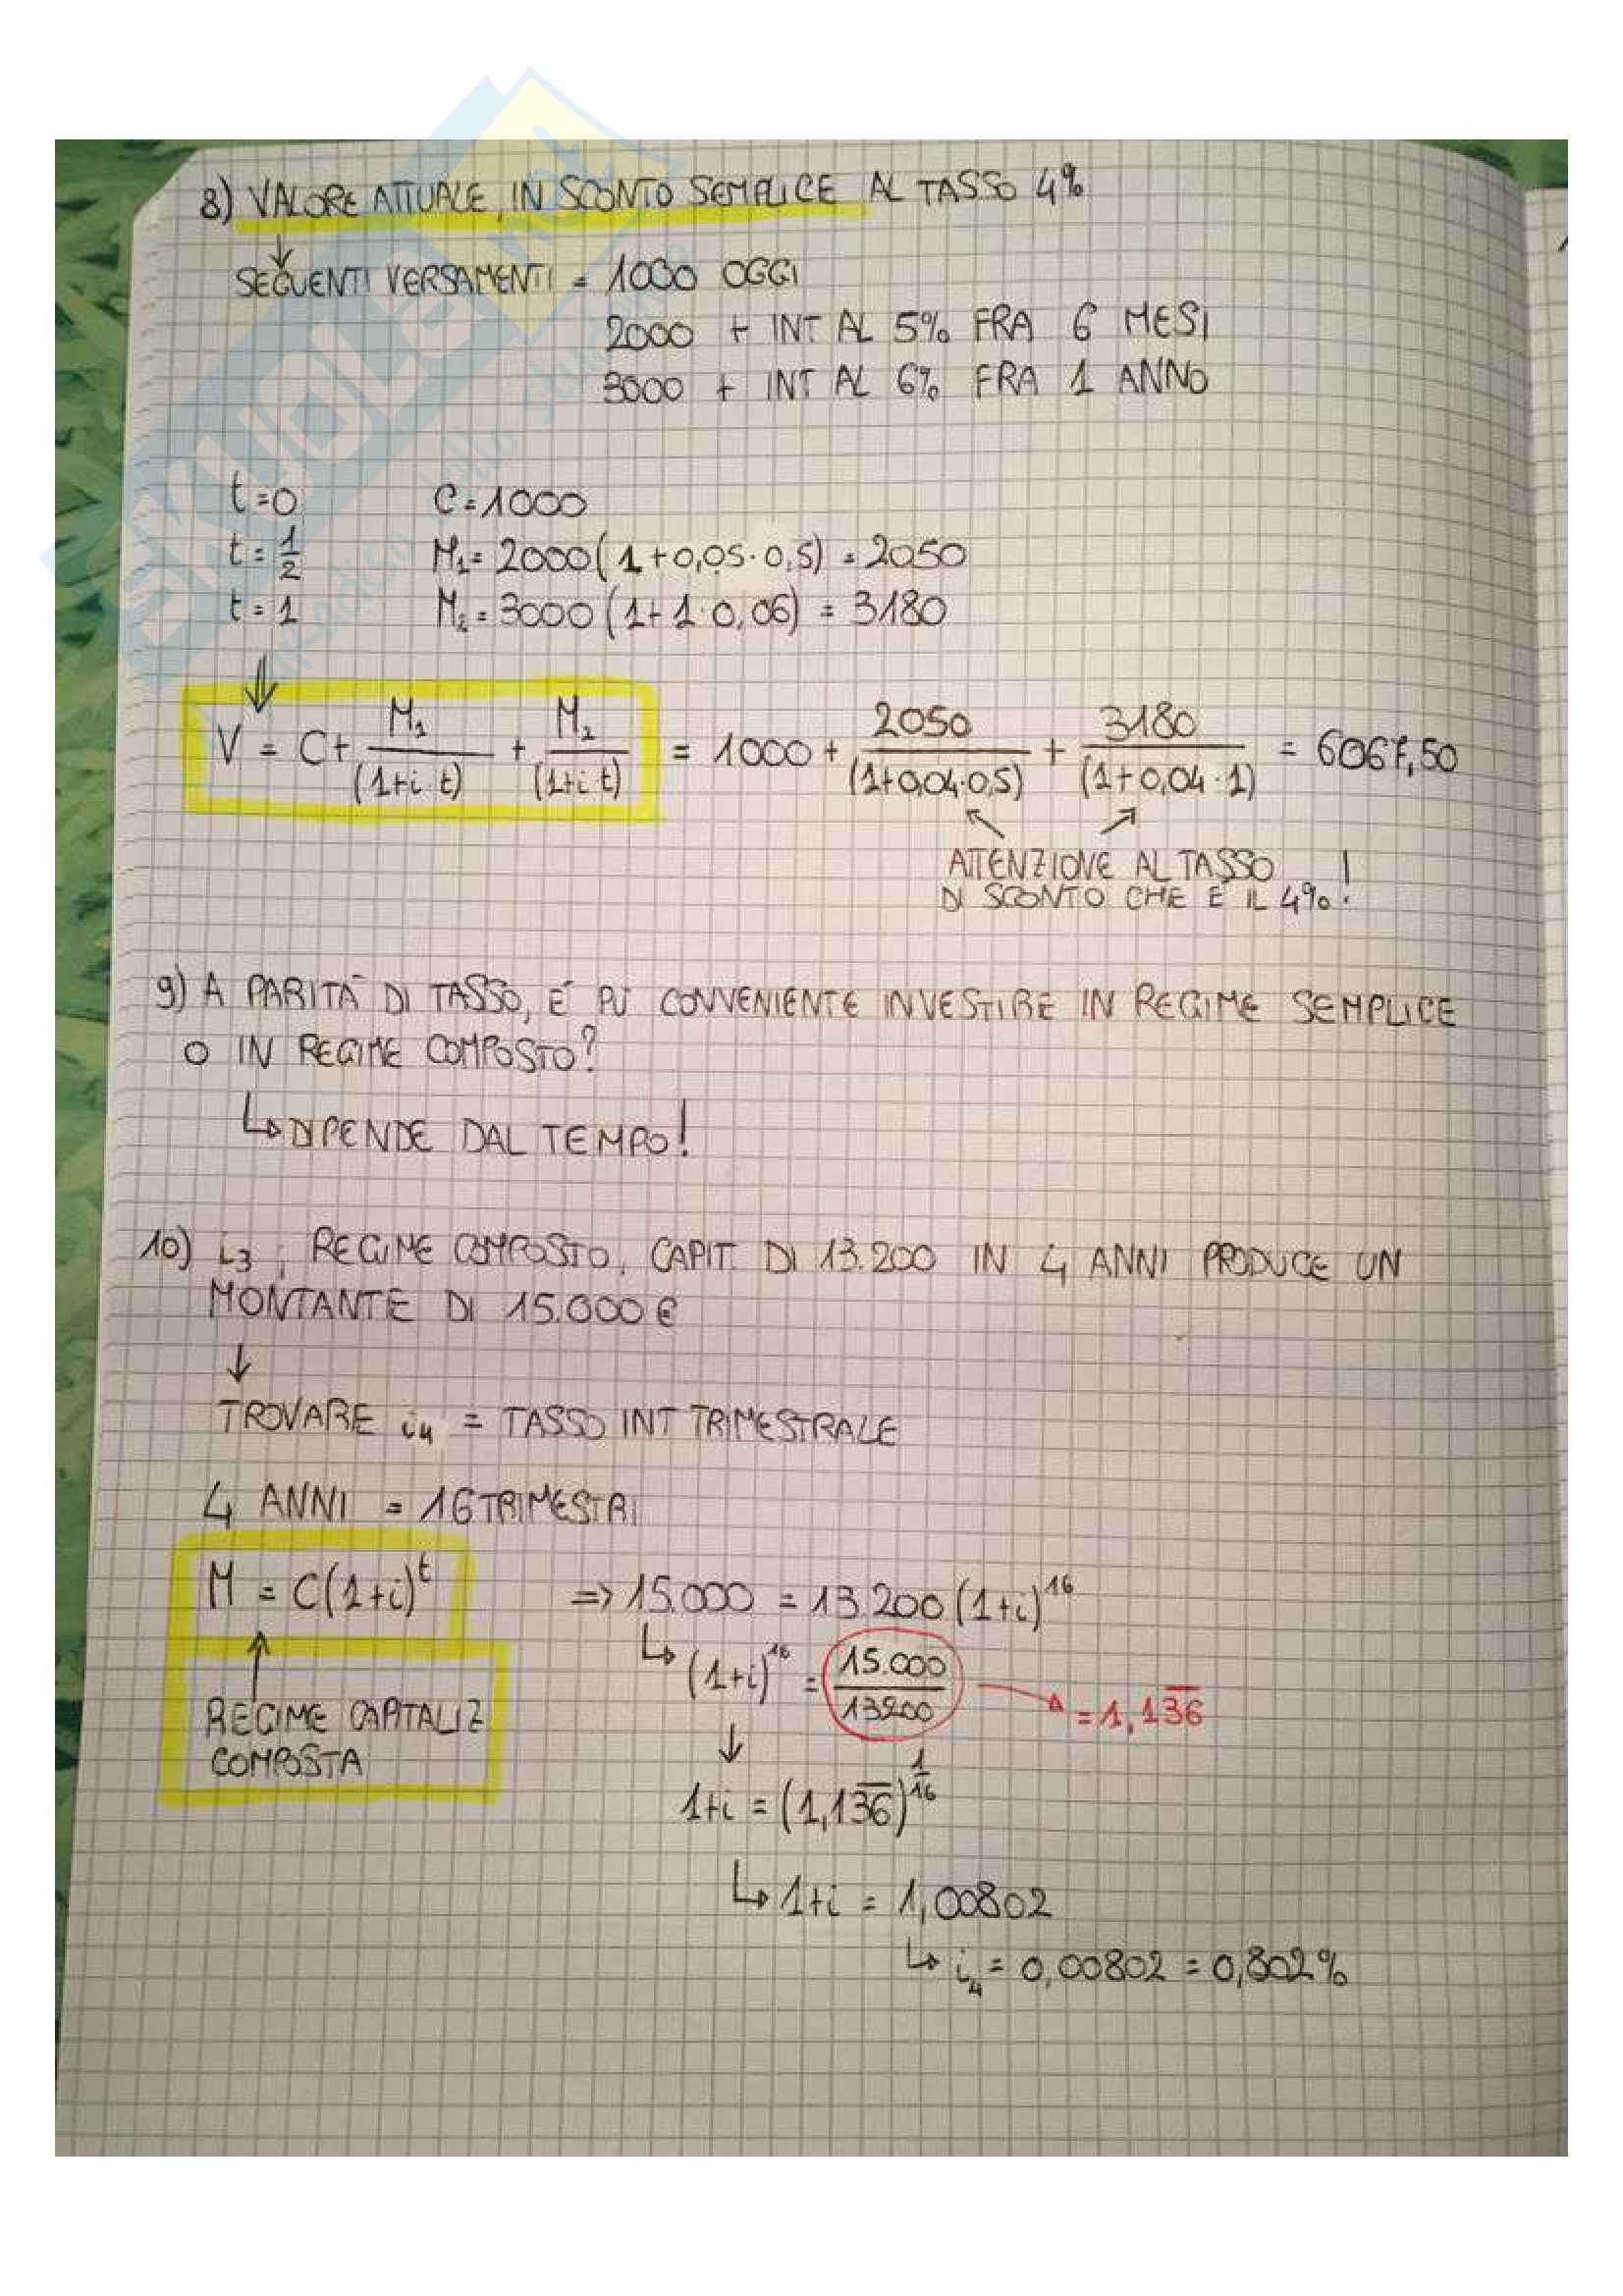 8) VALORE ATTUALE IN SCONTO SEMPLICE AL TASSO 4%
↓
SEGUENTI VERSAMENTI = 1000 OGGI
2000 + INT AL 5% FRA 6 MESI
3000 + INT AL 6% FRA 1 ANNO
t=0 C=1000
t=1/2 M₁=2000(1+0,05·0,5)=2050
t=1 M₂=3000(1+1·0,06)=3180
⇓
V = C + M₁/(1+i t) + M₂/(1+i t) = 1000 + 2050/(1+0,04·0,5) + 3180/(1+0,04·1) = 6067,50
ATTENZIONE AL TASSO
DI SCONTO CHE È IL 4%!
9) A PARITÀ DI TASSO, È PIÙ CONVENIENTE INVESTIRE IN REGIME SEMPLICE
O IN REGIME COMPOSTO?
↳ DIPENDE DAL TEMPO!
10) i₃, REGIME COMPOSTO, CAPIT. DI 13.200 IN 4 ANNI PRODUCE UN
MONTANTE DI 15.000€
↓
TROVARE i₄ = TASSO INT TRIMESTRALE
4 ANNI = 16 TRIMESTRI
M = C(1+i)^t ⇒ 15.000 = 13.200(1+i)^16
↳ (1+i)^16 = 15.000/13200 → = 1,1\overline{36}
REGIME CAPITALIZ
COMPOSTA
↓
1+i = (1,1\overline{36})^{1/16}
↳ 1+i = 1,00802
↳ i₄ = 0,00802 = 0,802%
SKUOLA.net